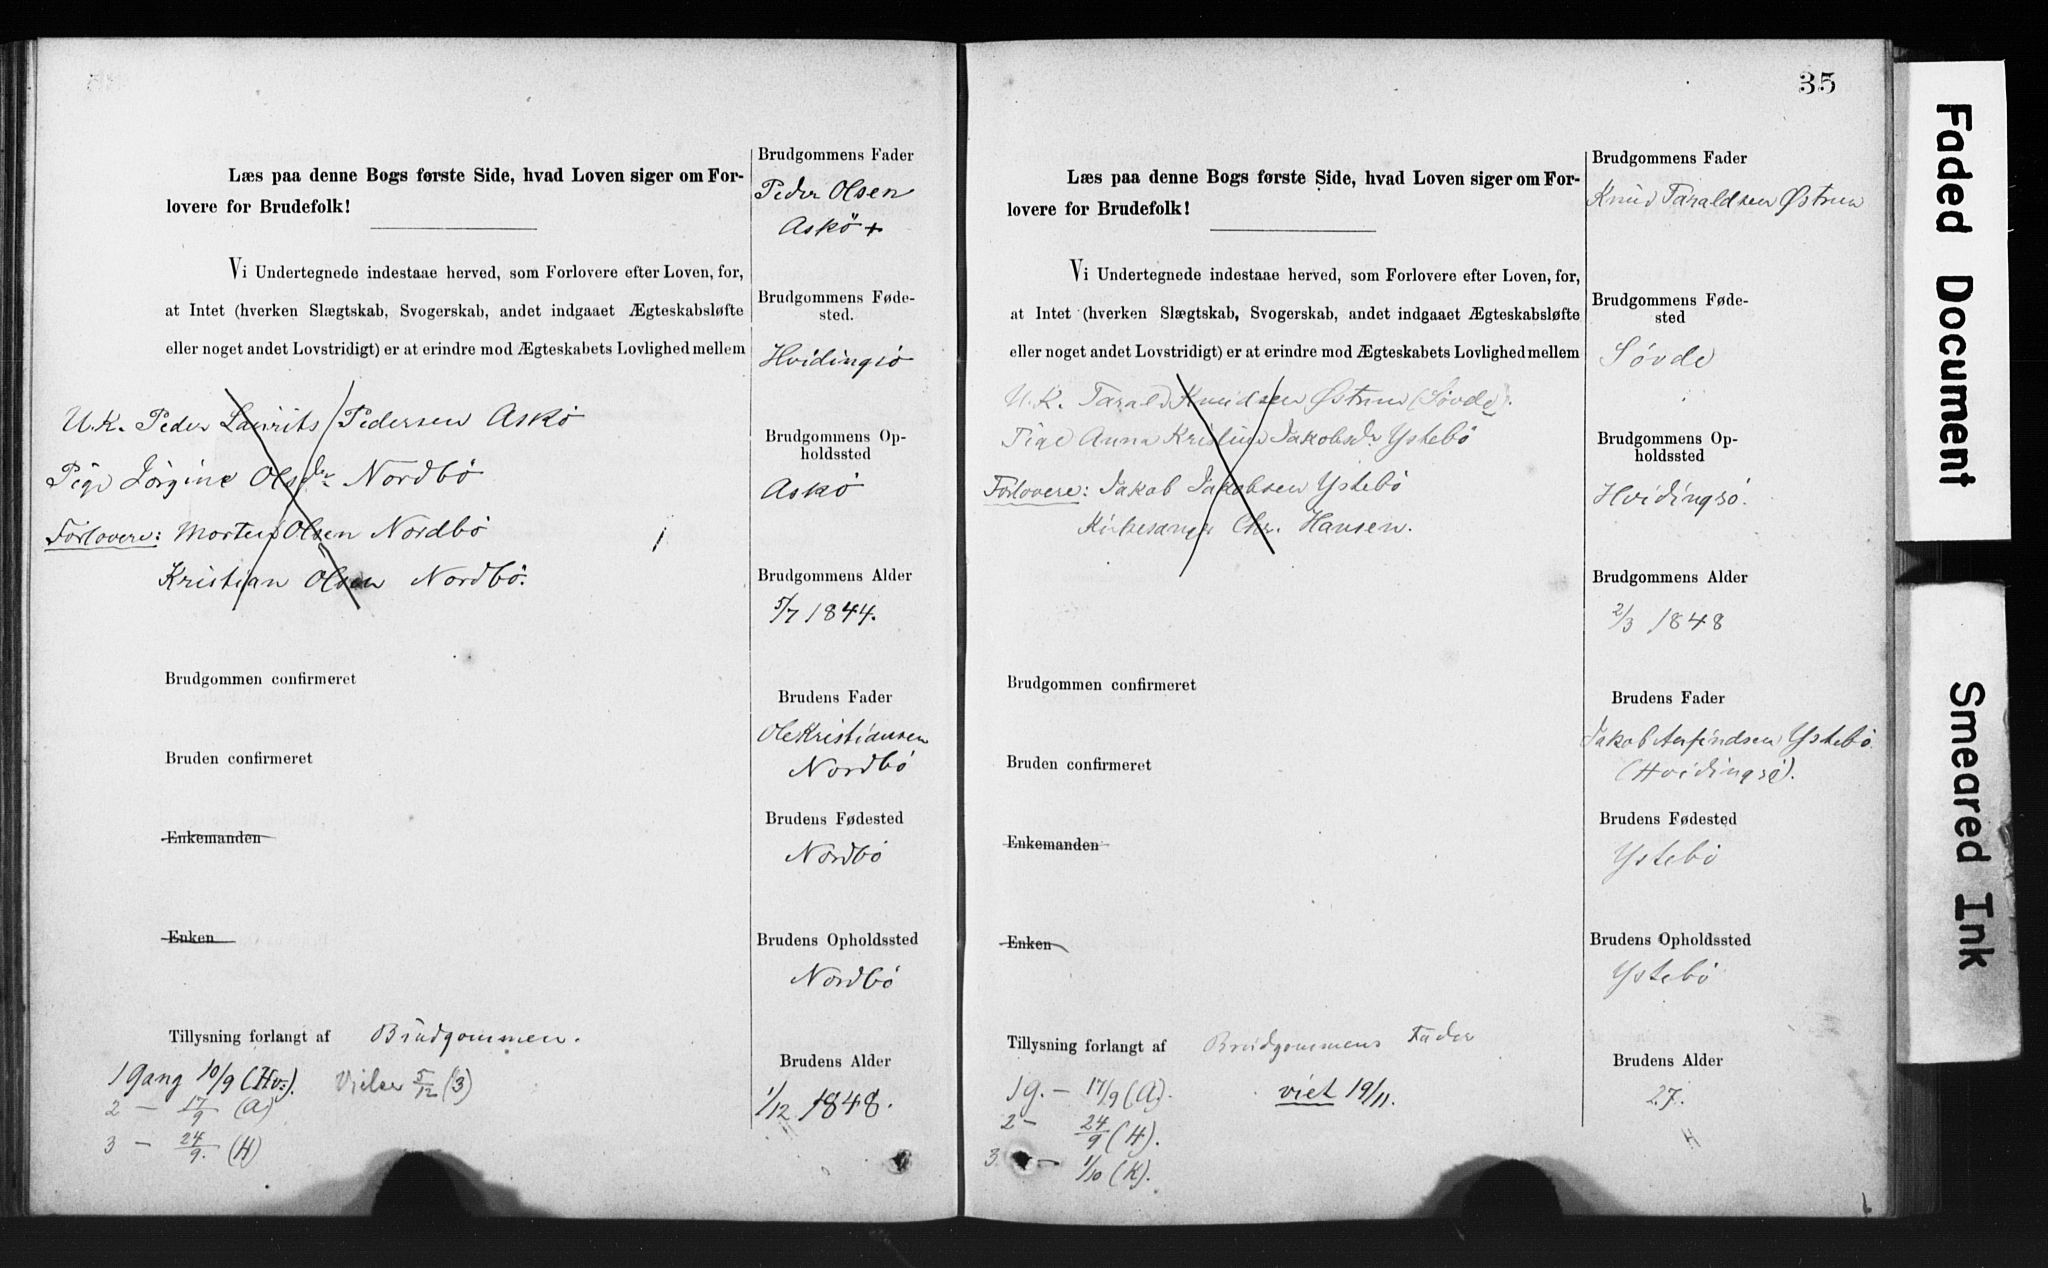 Læs paa denne Bogs første Side, hvad Loven siger om For-
lovere for Brudefolk!
Vi Undertegnede indestaae herved, som Forlovere efter Loven, for,
at Intet (hverken Slægtskab, Svogerskab, andet indgaaet Ægteskabsløfte
eller noget andet Lovstridigt) er at erindre mod Ægteskabets Lovlighed mellem
U.K. Peder Laurits Pedersen Askö
Pige Jörgine Olsdr Nordbö
Forlovere: Morten Olsen Nordbö
Kristian Olsen Nordbö.
Brudgommen confirmeret
Bruden confirmeret
Enkemanden
Enken
Tillysning forlangt af Brudgommen.
1 Gang 10/9 (Hv:). Vielse 5/12 (3)
2 — 17/9 (A)
3 — 24/9. (H)
Brudgommens Fader
Peder Olsen
Askö +
Brudgommens Føde-
sted.
Hvidingsö
Brudgommens Op-
holdssted
Askö
Brudgommens Alder
5/7 1844.
Brudens Fader
Ole Kristiansen
Nordbö
Brudens Fødested
Nordbö
Brudens Opholdssted
Nordbö
Brudens Alder
1/12 1848.
35
Læs paa denne Bogs første Side, hvad Loven siger om For-
lovere for Brudefolk!
Vi Undertegnede indestaae herved, som Forlovere efter Loven, for,
at Intet (hverken Slægtskab, Svogerskab, andet indgaaet Ægteskabsløfte
eller noget andet Lovstridigt) er at erindre mod Ægteskabets Lovlighed mellem
U.K. Tarald Knudsen Østrem (Søvde).
Pige Anna Kristine Jakobsdr Ystebö
Forlovere: Jakob Jakobsen Ystebö
Kirkesanger Chr. Hansen.
Brudgommen confirmeret
Bruden confirmeret
Enkemanden
Enken
Tillysning forlangt af Brudgommens Fader
1 g. — 17/9 (A). viet 19/11.
2 — 24/9 (H).
3 — 1/10 (K).
Brudgommens Fader
Knud Taraldsen Østrem
Brudgommens Føde-
sted
Søvde
Brudgommens Op-
holdssted
Hvidingsö.
Brudgommens Alder
2/3 1848
Brudens Fader
Jakob Anfindsen Ystebö
(Hvidingsö).
Brudens Fødested
Ystebö
Brudens Opholdssted
Ystebö
Brudens Alder
27.
Faded Document
Smeared Ink